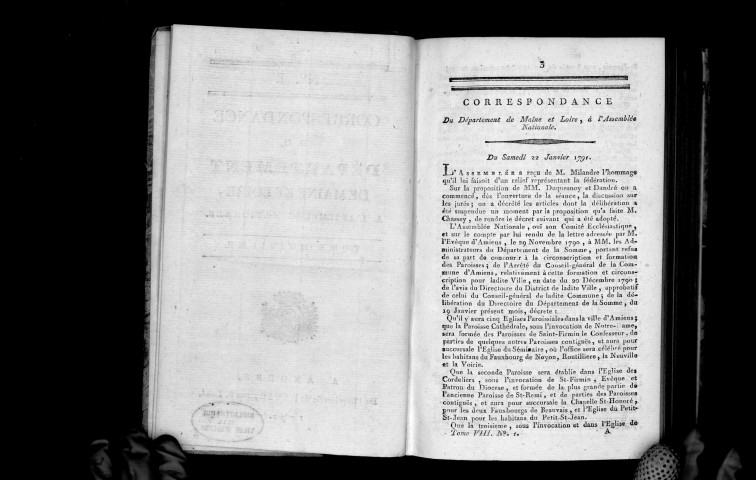 3
CORRESPONDANCE
Du Département de Maine et Loire, à l'Assemblée
Nationale.
Du Samedi 22 Janvier 1791.
L'ASSEMBLÉE a reçu de M. Milandre l'hommage
qu'il lui faisoit d'un relief représentant la fédération.
Sur la proposition de MM. Duquesnoy et Dandré on a
commencé, dès l'ouverture de la séance, la discussion sur
les jurés; on a décrété les articles dont la délibération a
été suspendue un moment par la proposition qu'a faite M.
Chassey, de rendre le décret suivant qui a été adopté.
L'Assemblée Nationale, ouï son Comité Ecclésiastique,
et sur le compte par lui rendu de la lettre adressée par M.
l'Evêque d'Amiens, le 29 Novembre 1790, à MM. les Ad-
ministrateurs du Département de la Somme, portant refus
de sa part de concourir à la circonscription et formation
des Paroisses; de l'Arrêté du Conseil-général de la Com-
mune d'Amiens, relativement à cette formation et circons-
cription pour ladite Ville, en date du 20 Décembre 1790;
de l'avis du Directoire du District de ladite Ville, approbatif
de celui du Conseil-général de ladite Commune; de la dé-
libération du Directoire du Département de la Somme, du
19 Janvier présent mois, décrete:
Qu'il y aura cinq Eglises Paroissiales dans la ville d'Amiens;
que la Paroisse Cathédrale, sous l'invocation de Notre-Dame,
sera formée des Paroisses de Saint-Firmin le Confesseur, de
parties de quelques autres Paroisses contiguës, et aura pour
succursale l'Eglise du Séminaire, où l'office sera célébré pour
les habitans du Fauxbourg de Noyon, Boutilliere, la Neuville
et la Voirie.
Que la seconde Paroisse sera établie dans l'Eglise des
Cordeliers, sous l'invocation de St-Firmin, Evêque et
Patron du Diocese, et formée de la plus grande partie de
l'ancienne Paroisse de St-Remi, et de parties des Paroisses
contiguës, et aura pour succursale la Chapelle St-Honoré,
pour les deux Fauxbourgs de Beauvais, et l'Eglise du Petit-
St-Jean pour les habitans du Petit-St-Jean.
Que la troisieme, sous l'invocation et dans l'Eglise de
Tome VIII. No. 1. A